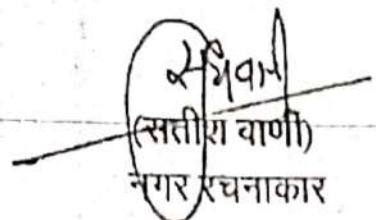 (सतीश वाणी)
नगर रचनाकार